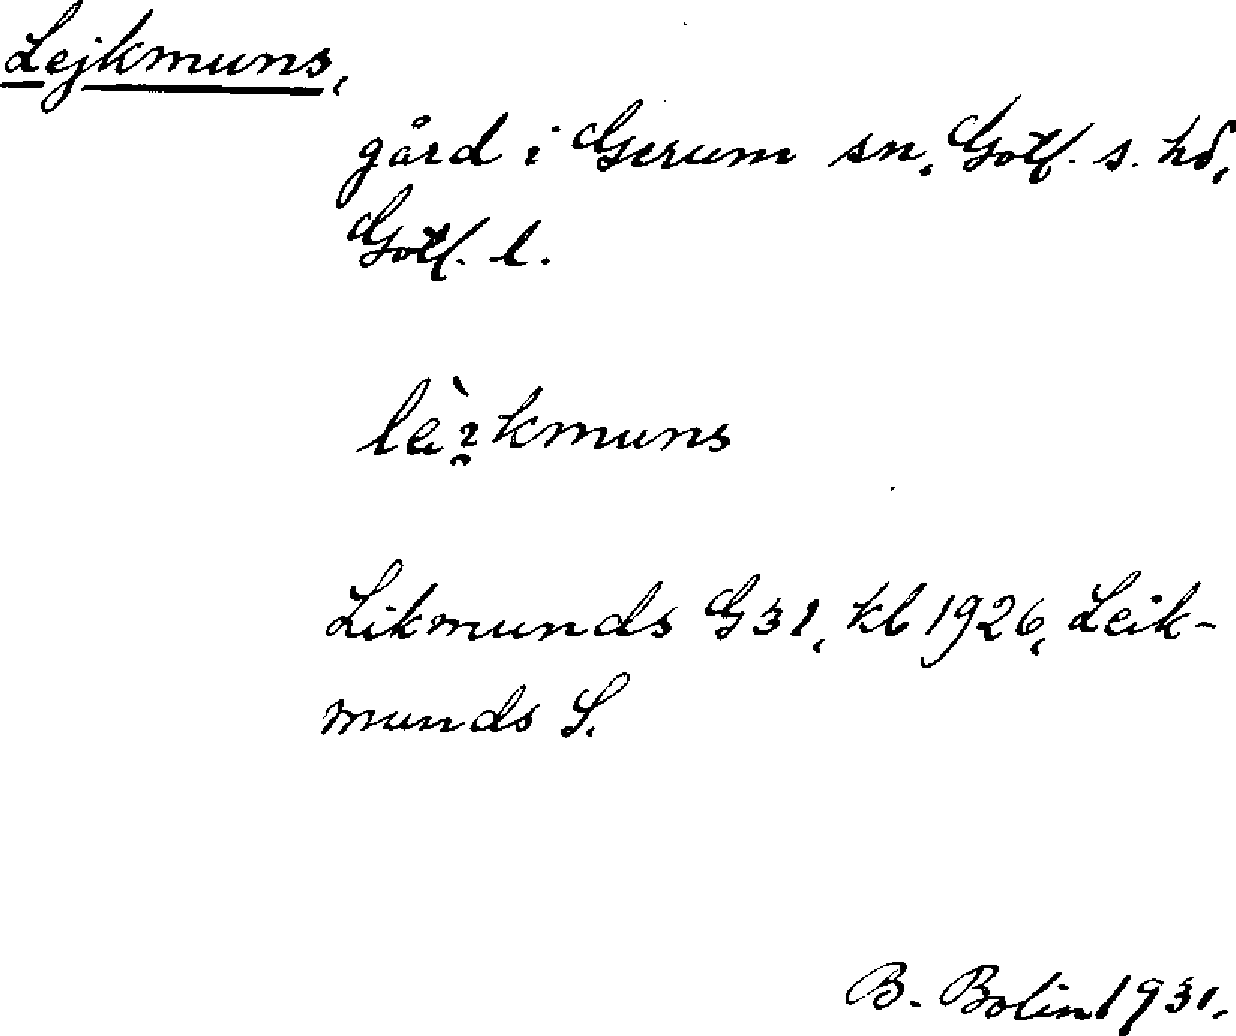 Lejkmuns,
gård i Gerum sn, Gotl. s. hd,
Gotl. l.
Likmunds G 31, kb 1926, Leik-
munds S.
B. Bolin 1931.